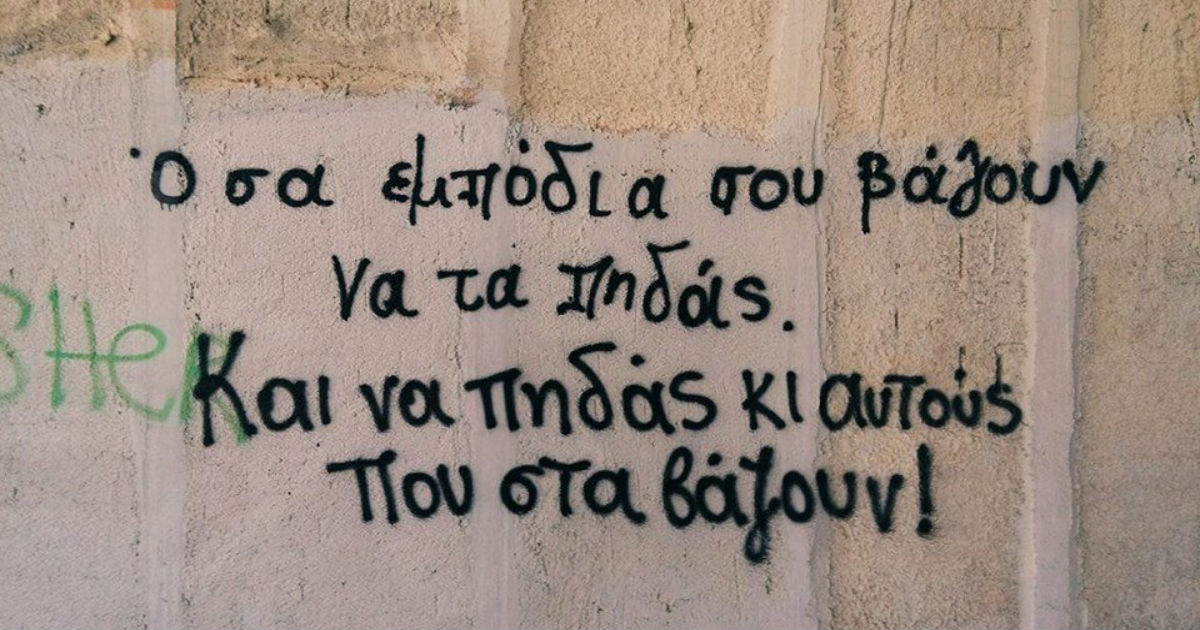 Όσα εμπόδια σου βάζουν
να τα πηδάς.
Και να πηδάς κι αυτούς
που στα βάζουν!